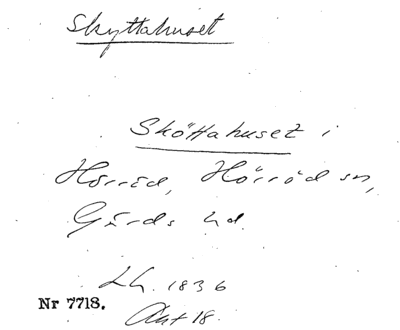 Skyttahuset
Sköttahuset i
Hörröd, Hörröd sn,
Gärds hd.
Lh. 1836
Akt 18.
Nr 7718.